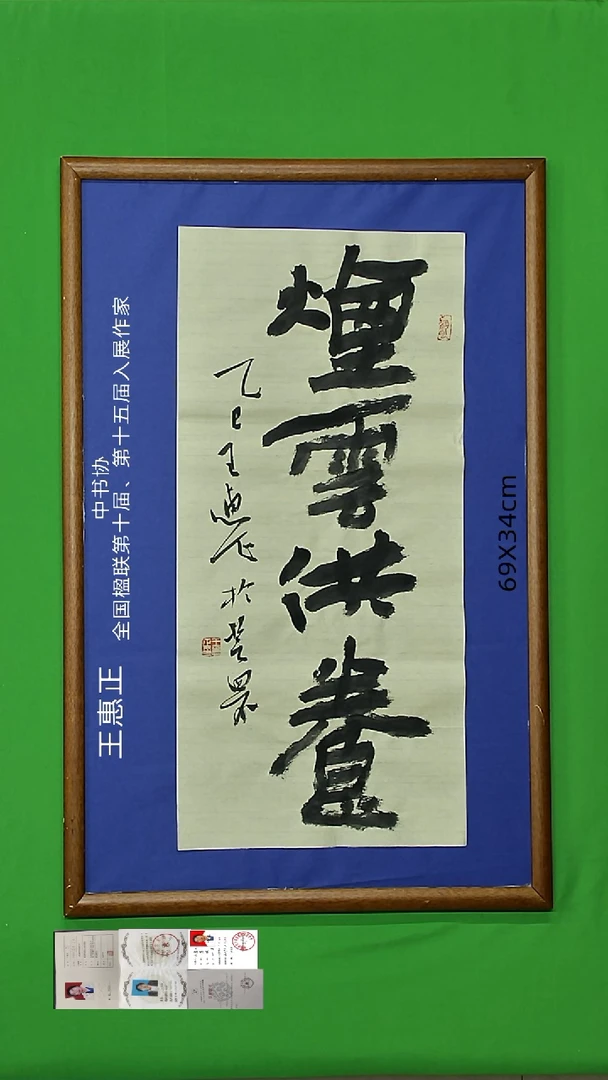 煙雲供養
乙巳王惠正於
中书协
全国楹联第十届、第十五届入展作家
王惠正
69X34cm